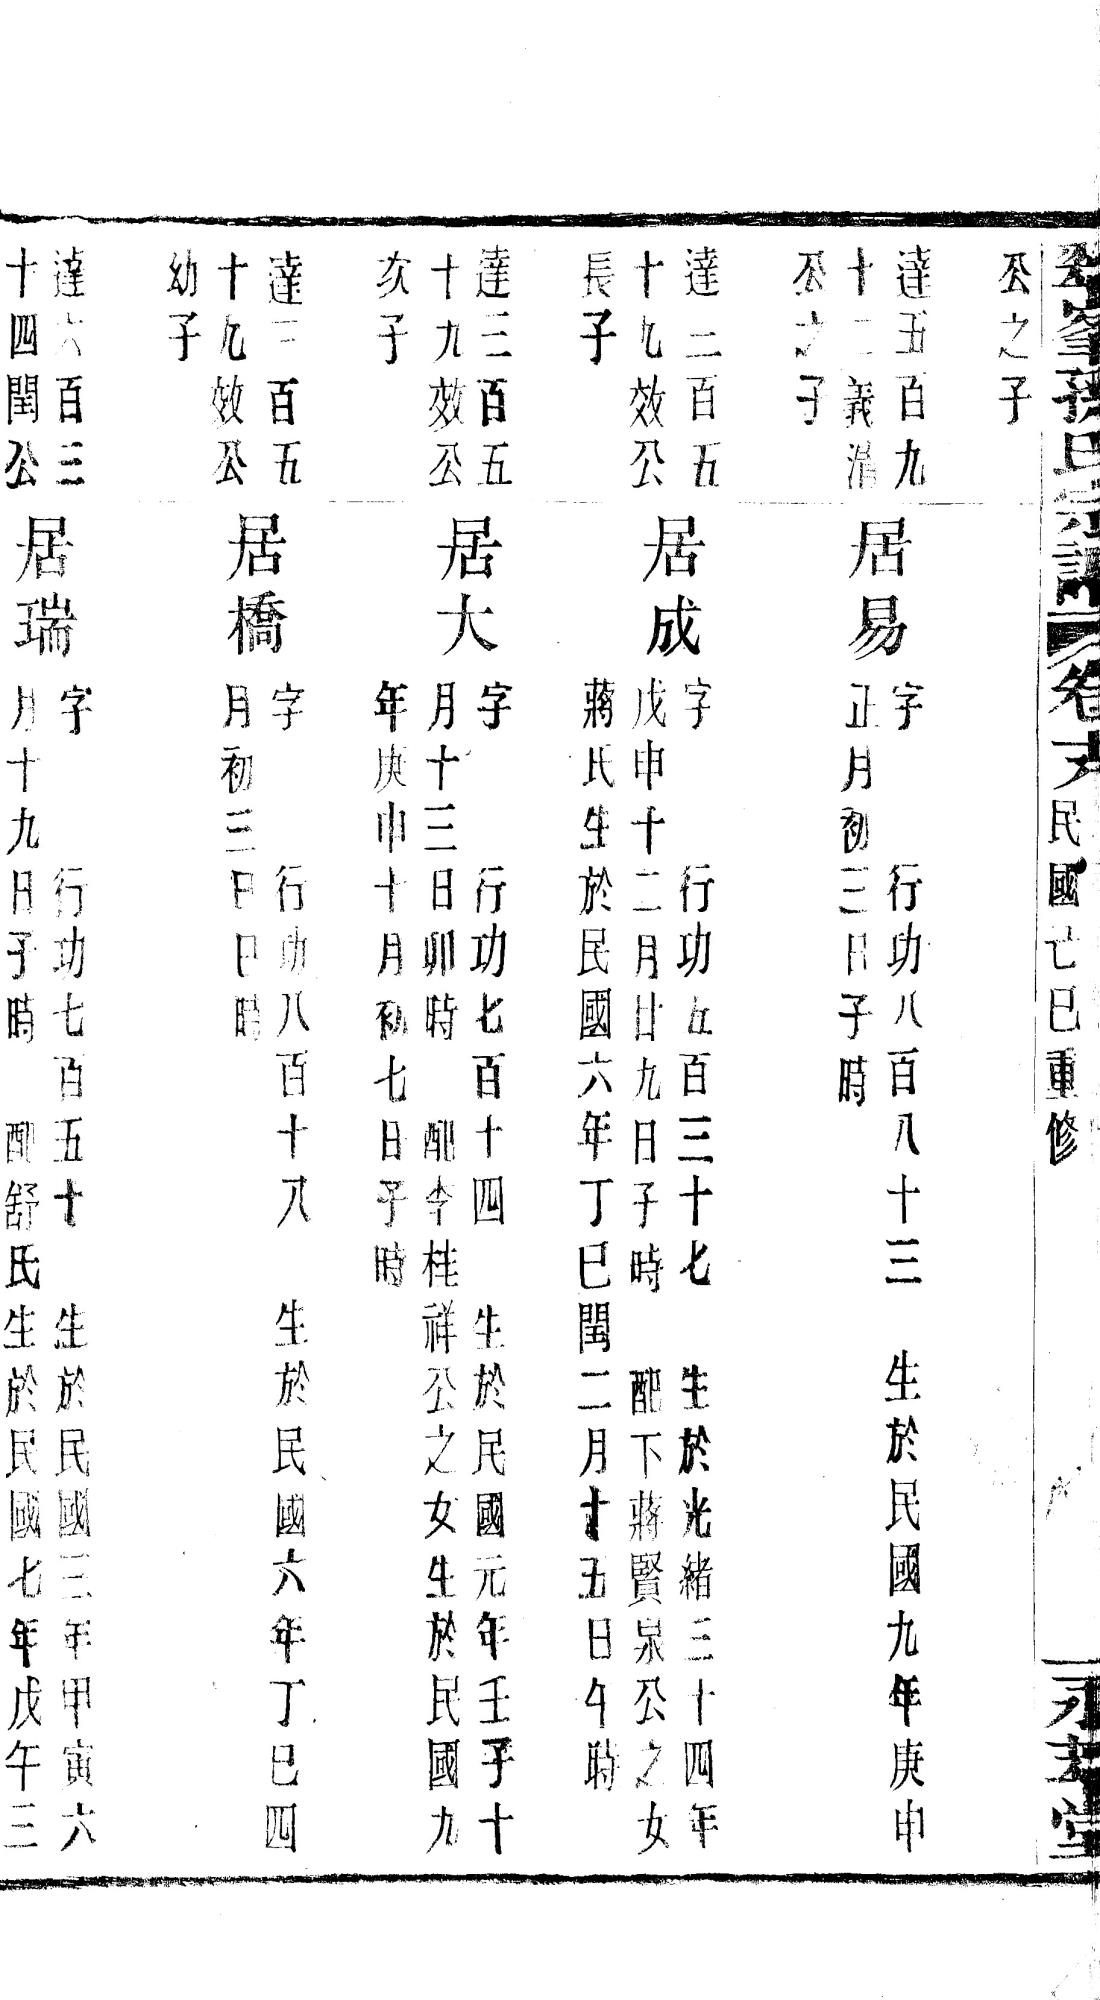 孫氏宗譜 卷 民國己巳重修
公之子
達五百九
十二義清
公之子
居易
字 行功八百八十三 生於民國九年庚申
正月初三日子時
達二百五
十九效公
長子
居成
字 行功五百三十七 生於光緒三十四年
戊申十二月廿九日子時 配下蔣賢泉公之女
蔣氏生於民國六年丁巳閏二月十五日午時
達三百五
十九效公
次子
居大
字 行功七百十四 生於民國元年壬子十
月十三日卯時 配李桂祥公之女生於民國九
年庚申十月初七日子時
達三百五
十九效公
幼子
居橋
字 行功八百十八 生於民國六年丁巳四
月初三日 時
達六百三
十四閏公
居瑞
字 行功七百五十 生於民國三年甲寅六
月十九日子時 配舒氏生於民國七年戊午三